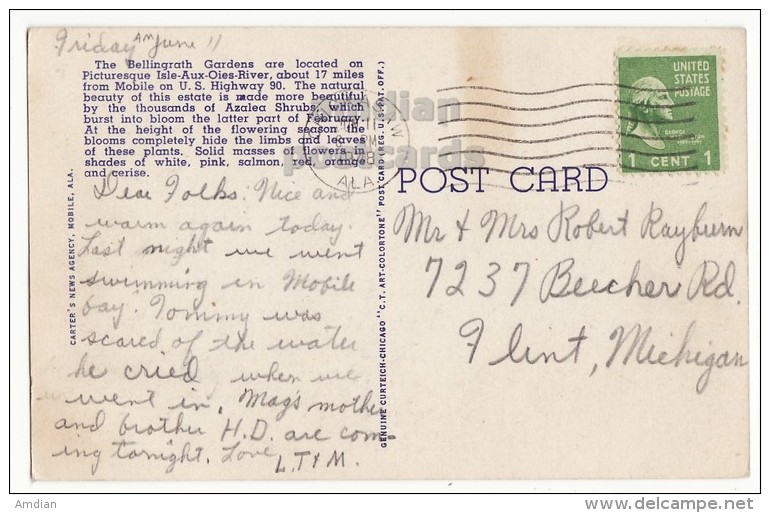 Friday AM June 11
The Bellingrath Gardens are located on
Picturesque Isle-Aux-Oies-River, about 17 miles
from Mobile on U. S. Highway 90. The natural
beauty of this estate is made more beautiful
by the thousands of Azalea Shrubs, which
burst into bloom the latter part of February.
At the height of the flowering season the
blooms completely hide the limbs and leaves
of these plants. Solid masses of flowers in
shades of white, pink, salmon, red, orange
and cerise.
Dear Folks: Nice and
warm again today.
Last night we went
swimming in Mobile
bay. Tommy was
scared of the water
he cried when we
went in. Mag's mother
and brother H.D. are com-
ing tonight. Love
L.T & M.
CARTER'S NEWS AGENCY, MOBILE, ALA.
GENUINE CURTEICH-CHICAGO "C.T. ART-COLORTONE" POST CARD (REG. U.S. PAT. OFF.)
ALA.
UNITED
STATES
POSTAGE
GEORGE
1 CENT 1
POST CARD
Mr & Mrs Robert Rayburn
7237 Beecher Rd.
Flint, Michigan
amdian
postcards
Amdian
www.delcampe.net